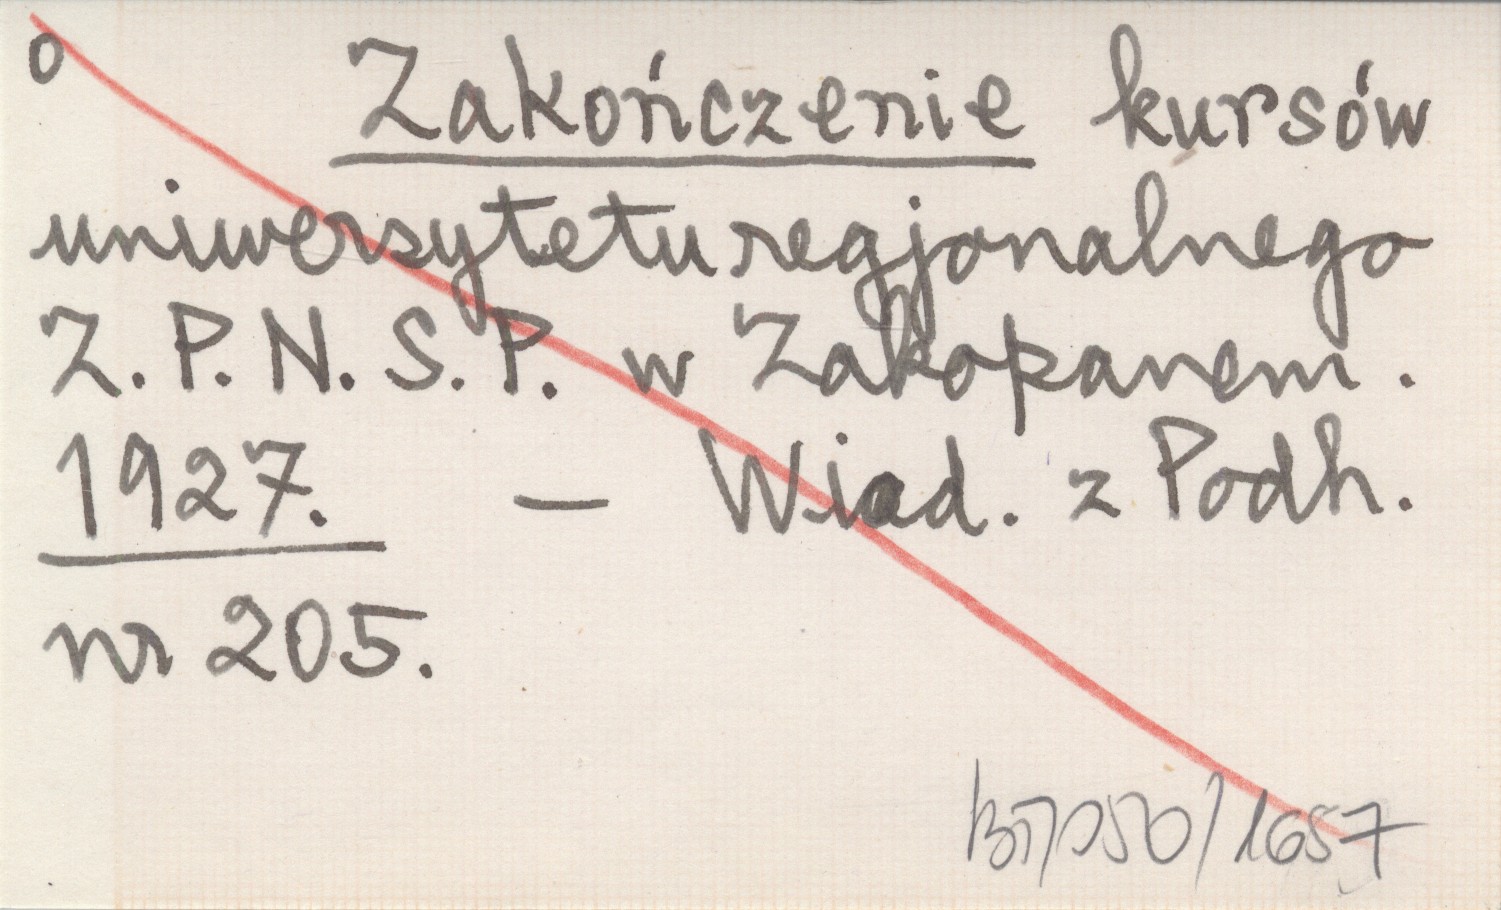 o Zakończenie kursów
uniwersytetu regjonalnego
Z. P. N. S. P. w Zakopanem.
1927. — Wiad. z Podh.
nr 205.
1657